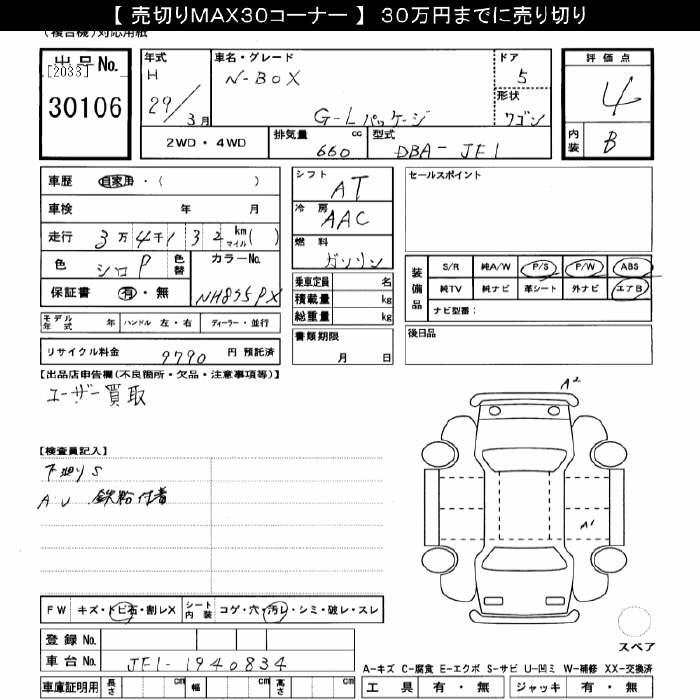 【 売切りMAX30コーナー 】 30万円までに売り切り
(複合機)対応用紙
出品No.
[2033]
30106
年式
H
29/3月
車名・グレード
N-BOX
G-Lパッケージ
ドア
5
形状
ワゴン
2WD・4WD
排気量 cc
660
型式
DBA- JF1
評価点
4
内装
B
車歴 自家用・( )
車検 年 月
走行 3万4千132 km マイル( )
色 シロP 色替
カラーNo.
NH875PX
保証書 有・無
モデル年式 年 ハンドル 左・右 ディーラー・並行
リサイクル料金 9790 円 預託済
シフト
AT
冷房
AAC
燃料
ガソリン
乗車定員 名
積載量 kg
総重量 kg
書類期限
月 日
セールスポイント
装備品
S/R 純A/W P/S P/W ABS
純TV 純ナビ 革シート 外ナビ エアB
ナビ型番:
後日品
【出品店申告欄(不良箇所・欠品・注意事項等)】
ユーザー買取
【検査員記入】
下廻りS
AU 鉄粉付着
A2
A1
FW キズ・トビ石・割レX シート内装 コゲ・穴・汚レ・シミ・破レ・スレ
登録No.
車台No. JF1-1940834
車庫証明用 長さ cm 幅 cm 高さ cm
スペア
A-キズ C-腐食 E-エクボ S-サビ U-凹ミ W-補修 XX-交換済
工具 有・無 ジャッキ 有・無